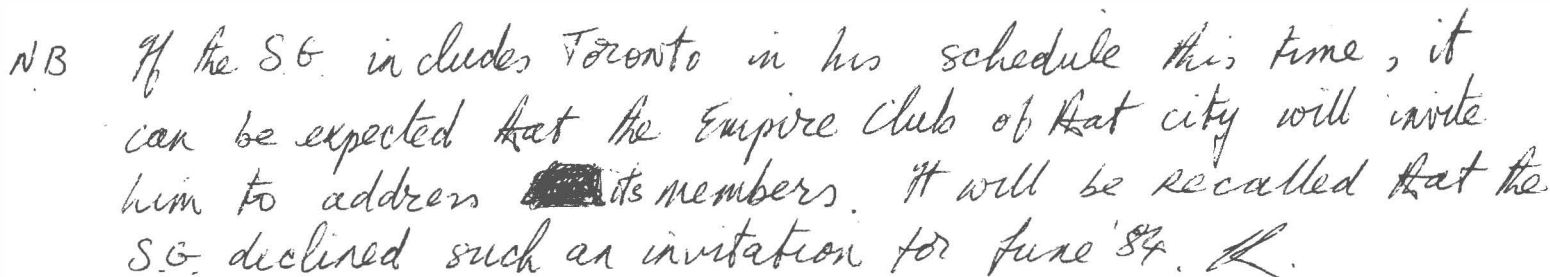 NB If the S.G. includes Toronto in his schedule this time, it
can be expected that the Empire Club of that city will invite
him to address its members. It will be recalled that the
S.G. declined such an invitation for June '84.